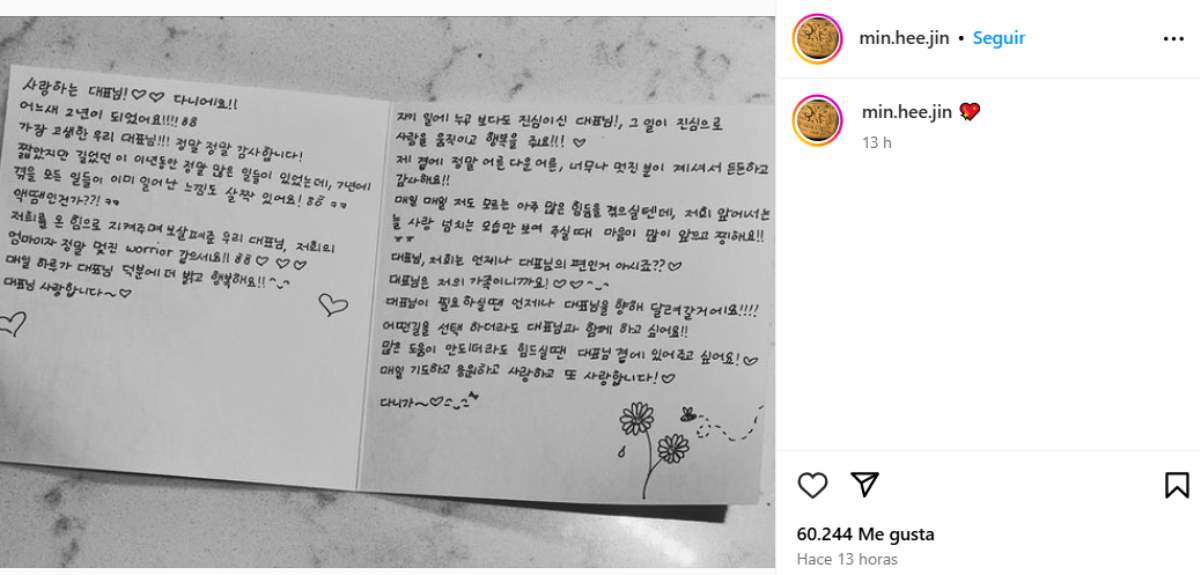 사랑하는 대표님!♡♡ 다니에요!!
어느새 2년이 되었어요!!!! 88
가장 고생한 우리 대표님!!! 정말 정말 감사합니다!
짧았지만 길었던 이 이년동안 정말 많은 일들이 있었는데, 7년에
겪을 모든 일들이 이미 일어난 느낌도 살짝 있어요! 88 ㅋㅋ
액땜인건가??! ㅋㅋ
저희를 온 힘으로 지켜주며 보살펴준 우리 대표님, 저희의
엄마이자 정말 멋진 worrior 같으세요!! 88 ♡ ♡ ♡
매일 하루가 대표님 덕분에 더 밝고 행복해요!! ^_^
대표님 사랑합니다~♡
자기 일에 누구 보다도 진심이신 대표님!, 그 일이 진심으로
사람을 움직이고 행복을 줘요!!! ♡
제 곁에 정말 어른 다운 어른, 너무나 멋진 분이 계셔서 든든하고
감사해요!!
매일 매일 저도 모르는 아주 많은 힘듦을 겪으실텐데, 저희 앞에서는
늘 사랑 넘치는 모습만 보여 주실때 마음이 많이 아프고 찡해요!!
ㅠㅠ
대표님, 저희는 언제나 대표님의 편인거 아시죠??♡
대표님은 저의 가족이니까요! ♡♡^_^
대표님이 필요하실땐 언제나 대표님을 향해 달려갈거에요!!!!
어떤길을 선택 하더라도 대표님과 함께 하고 싶어요!!
많은 도움이 안되더라도 힘드실땐 대표님 곁에 있어주고 싶어요!♡
매일 기도하고 응원하고 사랑하고 또 사랑합니다!♡
다니가~♡^_^
min.hee.jin • Seguir
min.hee.jin 💘
13 h
60.244 Me gusta
Hace 13 horas